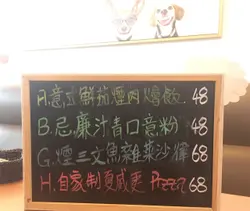 A.意式鮮茄煙肉燴飯 48
B.忌廉汁青口意粉 48
G.煙三文魚雜菜沙律 68
H.自家制夏威夷 Pizza 68